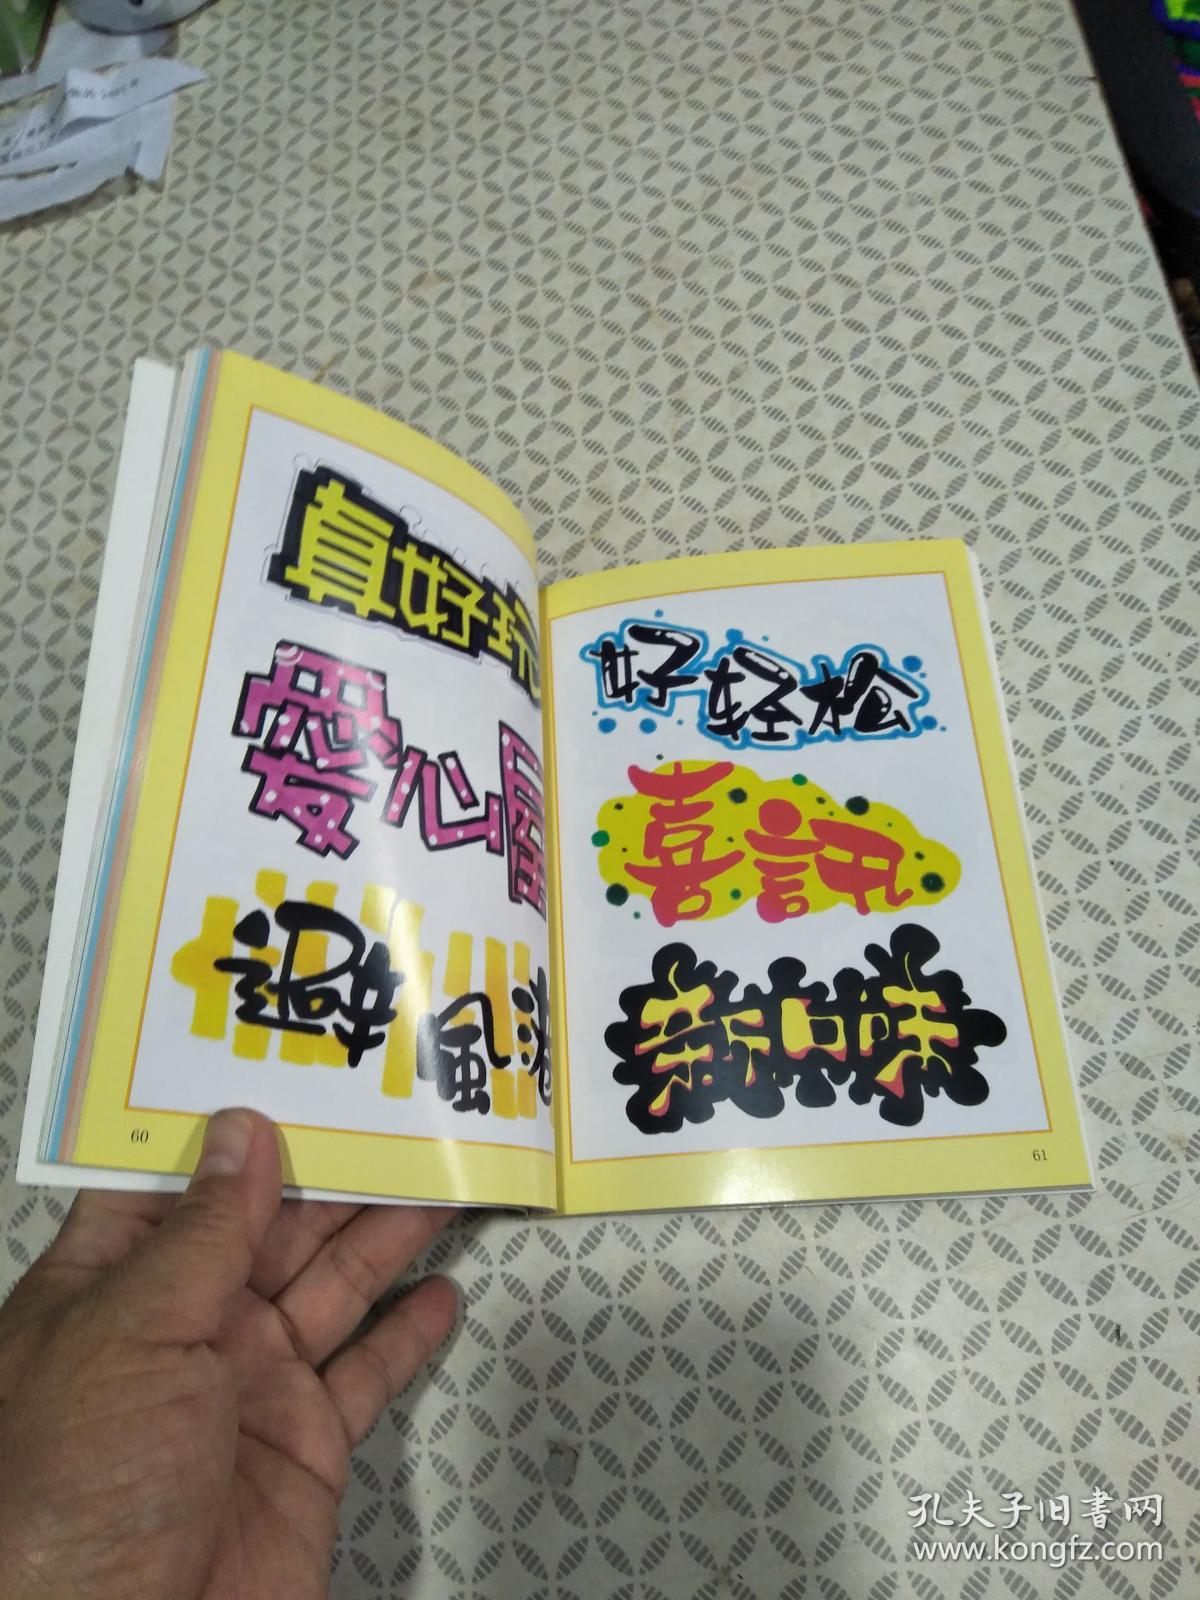 真好玩
愛心
避風港
60
好轻松
喜訊
61
孔夫子旧書网
www.kongfz.com